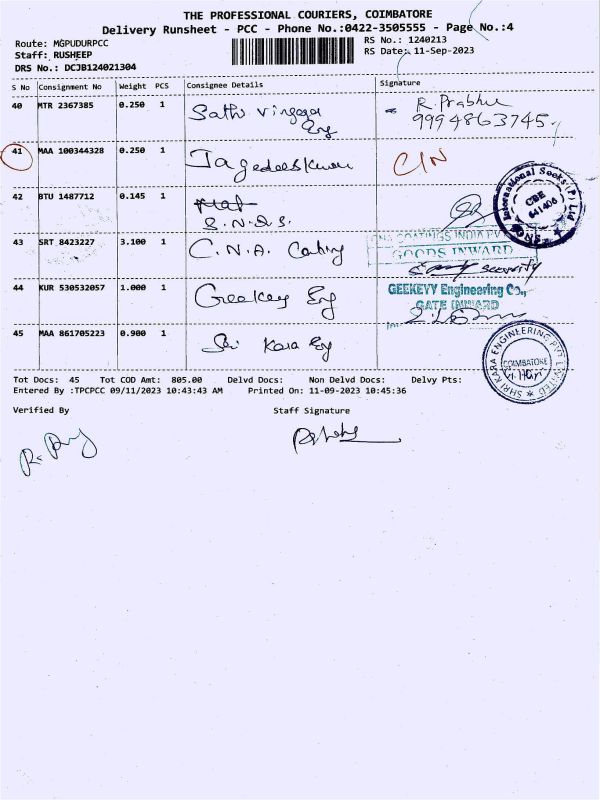 THE PROFESSIONAL COURIERS, COIMBATORE
Delivery Runsheet - PCC - Phone No.:0422-3505555 - Page No.:4
Route: MGPUDURPCC
RS No.: 1240213
Staff: RUSHEEP
RS Date: 11-Sep-2023
DRS No.: DCJB124021304
S No Consignment No Weight PCS Consignee Details Signature
40 MTR 2367385 0.250 1 Eng R. Prabhu
9994863745
41 MAA 100344328 0.250 1 CIN
42 BTU 1487712 0.145 1 S.N.Q.S.
International Seeks (P) Ltd CBE 641406 SNQS
43 SRT 8423227 3.100 1 C.N.A. Coating
COATINGS INDIA PV
GOODS INWARD
security
44 KUR 530532057 1.000 1 Geekay Eng
GEEKEVY Engineering Co.,
GATE INWARD
45 MAA 861705223 0.900 1 Sri Kara Eng
SHRI KARA ENGINEERING PVT LIMITED COIMBATORE
Tot Docs: 45 Tot COD Amt: 805.00 Delvd Docs: Non Delvd Docs: Delvy Pts:
Entered By :TPCPCC 09/11/2023 10:43:43 AM Printed On: 11-09-2023 10:45:36
Verified By Staff Signature